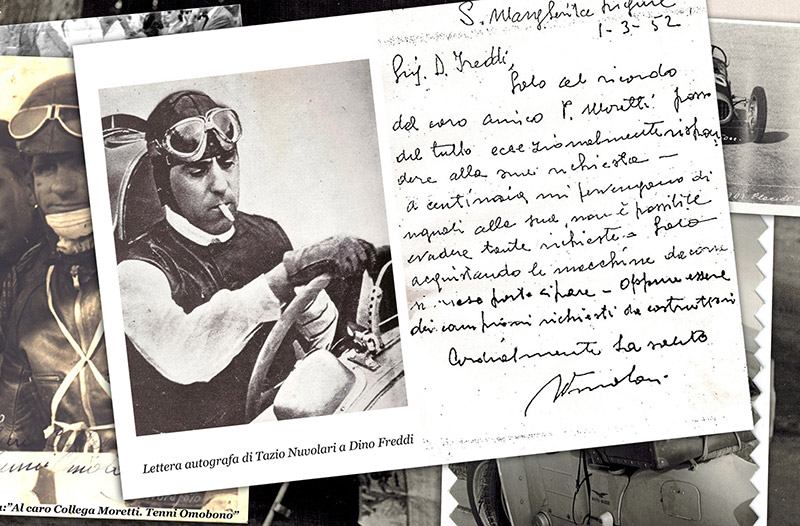 S. Margherita Ligure
1-3-52
Sig. D. Freddi,
Solo al ricordo
del caro amico V. Moretti posso
del tutto eccezionalmente rispon
dere alla sua richiesta -
a centinaia mi pervengono di
uguali alla sua, non è possibile
evadere tante richieste. Solo
acquistando le macchine da corse
si
partecipare - Oppure essere
dei campioni richiesti da costruttori
Cordialmente La saluto
Nuvolari
Lettera autografa di Tazio Nuvolari a Dino Freddi
a:"Al caro Collega Moretti. Tenni Omobono"